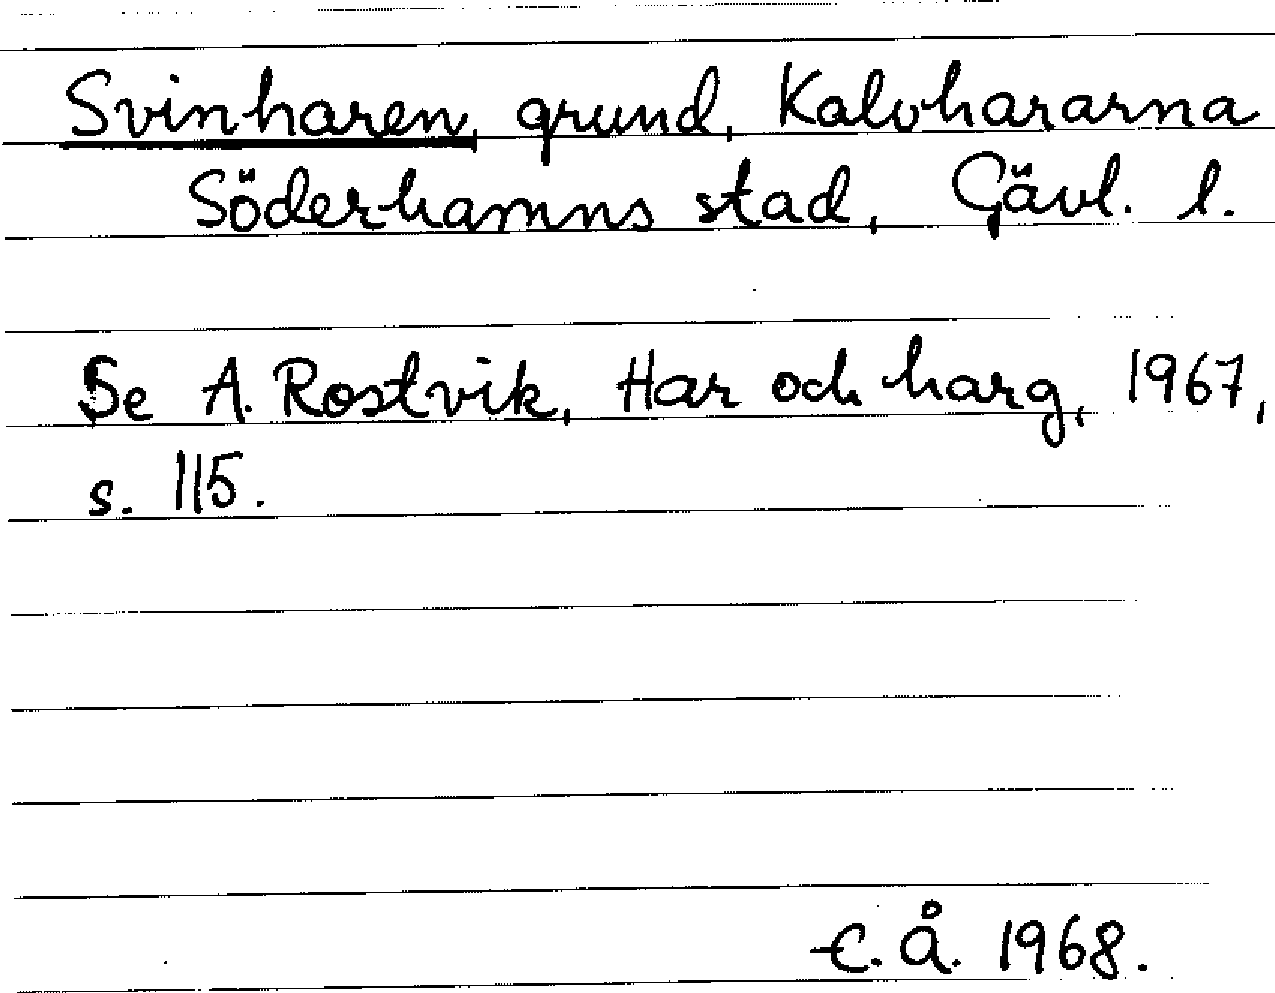 Svinharen, grund, Kalvhararna
Söderhamns stad, Gävl. l.
Se A. Rostvik, Har och harg, 1967,
s. 115.
C. Å. 1968.